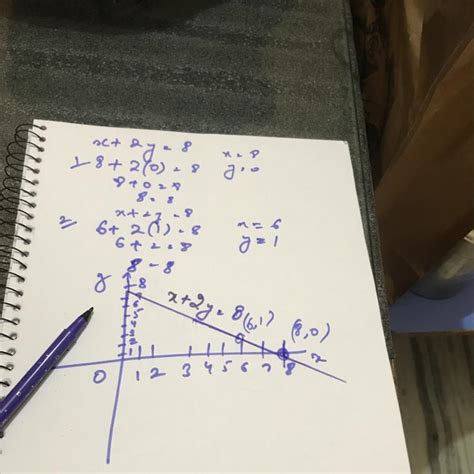 x + 2y = 8 x = 8
1) 8 + 2(0) = 8 y = 0
8 + 0 = 8
8 = 8
x + 2y = 8
2) 6 + 2(1) = 8 x = 6
6 + 2 = 8 y = 1
8 = 8
y
8
6
5
4
3
2
1
x + 2y = 8
(6,1)
(8,0)
x
0 1 2 3 4 5 6 7 8